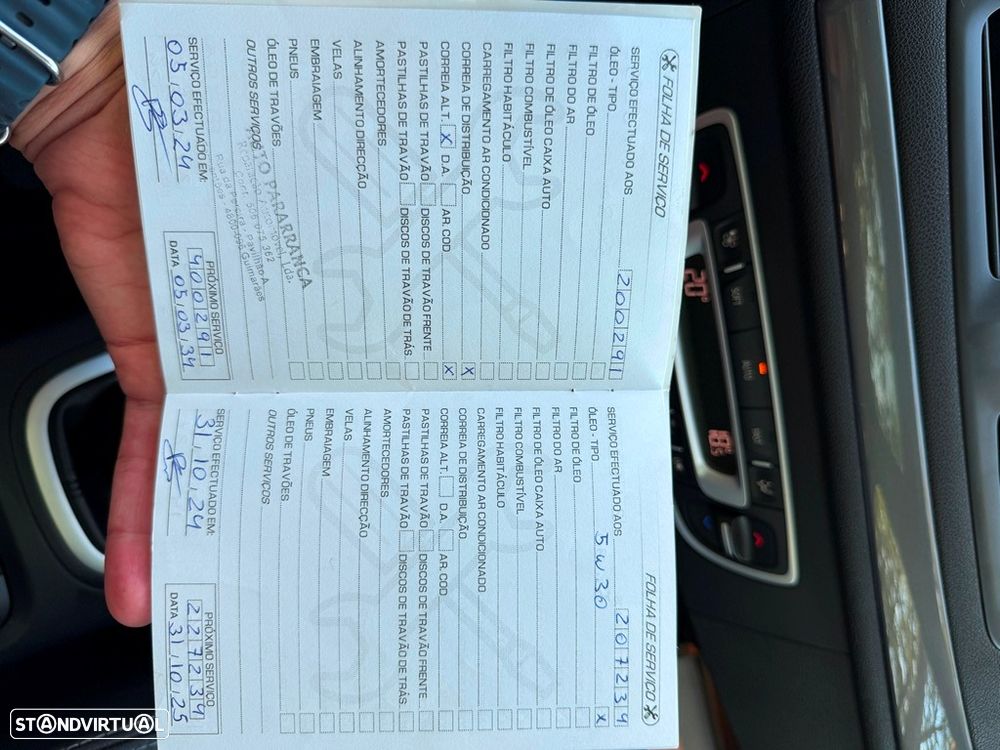 FOLHA DE SERVIÇO
SERVIÇO EFECTUADO AOS 200291
ÓLEO - TIPO
FILTRO DE ÓLEO
FILTRO DO AR
FILTRO DE ÓLEO CAIXA AUTO
FILTRO COMBUSTÍVEL
FILTRO HABITÁCULO
CARREGAMENTO AR CONDICIONADO
CORREIA DE DISTRIBUIÇÃO X
CORREIA ALT. X D.A. AR. COD X
PASTILHAS DE TRAVÃO DISCOS DE TRAVÃO FRENTE
PASTILHAS DE TRAVÃO DISCOS DE TRAVÃO DE TRÁS
AMORTECEDORES
ALINHAMENTO DIRECÇÃO
VELAS
EMBRAIAGEM
PNEUS
ÓLEO DE TRAVÕES
OUTROS SERVIÇOS
PARARRANCA
SERVIÇO EFECTUADO EM:
05,03,24
PRÓXIMO SERVIÇO
400291
DATA 05,03,34
FOLHA DE SERVIÇO
SERVIÇO EFECTUADO AOS 207234
ÓLEO - TIPO 5W30 X
FILTRO DE ÓLEO
FILTRO DO AR
FILTRO DE ÓLEO CAIXA AUTO
FILTRO COMBUSTÍVEL
FILTRO HABITÁCULO
CARREGAMENTO AR CONDICIONADO
CORREIA DE DISTRIBUIÇÃO
CORREIA ALT. D.A. AR. COD
PASTILHAS DE TRAVÃO DISCOS DE TRAVÃO FRENTE
PASTILHAS DE TRAVÃO DISCOS DE TRAVÃO DE TRÁS
AMORTECEDORES
ALINHAMENTO DIRECÇÃO
VELAS
EMBRAIAGEM
PNEUS
ÓLEO DE TRAVÕES
OUTROS SERVIÇOS
SERVIÇO EFECTUADO EM:
31,10,24
PRÓXIMO SERVIÇO
227234
DATA 31,10,25
SOFT
AUTO
STANDVIRTUAL